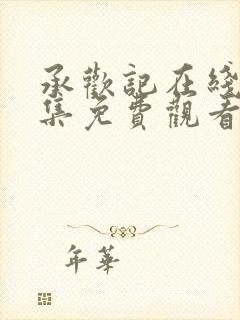 承歡記在綫
集免費觀看
年華